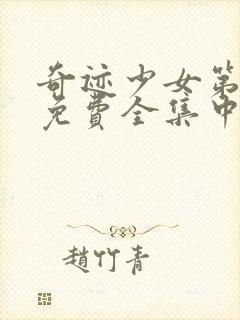 奇迹少女第
免費全集中
趙竹青